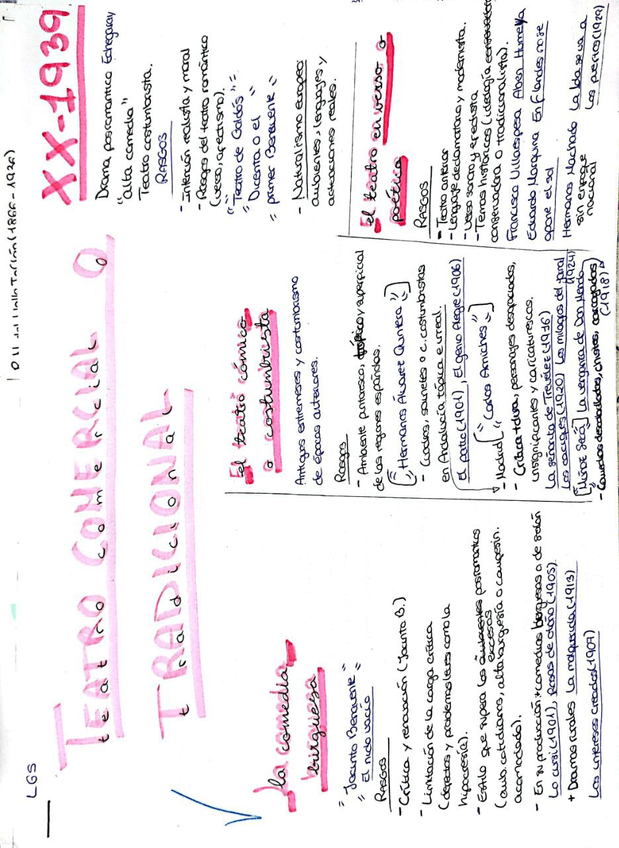 LGS
TEATRO COMERCIAL O
teatro comercial o
TRADICIONAL
tradicional
XX-1939
Drama posromantico Echegaray
"alta comedia"
Teatro costumbrista.
RASGOS
- Intención realista y moral
- Rasgos del teatro romántico
(verso, afectismo).
"Teatro de Galdós"
" Dicenta o el
primer Benavente "
- Naturalismo europeo
ambientes, lenguajes y
actuaciones reales.
La comedia
burguesa
" Jacinto Benavente "
El nido vacío
RASGOS
- Crítica y renovación (Jacinto B.)
- Limitación de la carga crítica
(defectos y problemas leves como la
hipocresía).
- Estilo que supera los ambientes posromanticos
y excesos
(amb. cotidianos, alta burguesía o campesin.
acomodado).
- En su producción + comedias burguesas o de salón
Lo cursi (1901), Rosas de otoño (1905).
+ Dramas rurales La malquerida (1913)
Los intereses creados (1907)
El teatro cómico
o costumbrista
Antiguos entremeses y costumbrismo
de épocas anteriores.
RASGOS
- Ambiente pintoresco, y superficial
de las regiones españolas.
["Hermanos Álvarez Quintero"]
- Cuadros, sainetes o c. costumbristas
en Andalucía tópica e irreal.
El patio (1901), El genio alegre (1906)
- Madrid ["Carlos Arniches"]
- Crítica + dura, personajes desgraciados,
insignificantes y caricaturescos.
La señorita de Trevélez (1916)
Los caciques (1920) Los milagros del jornal
(1924)
[Muñoz Seca] La venganza de Don Mendo
(1918)
- descabelladas, chistes, carcajadas
El teatro en verso o
poético
RASGOS
- Teatro anterior
- Lenguaje declamatorio y modernista.
- Verso sonoro y efectista
- Temas históricos (ideología
conservadora o tradicionalista).
Francisco Villaespesa Aben Humeya
Eduardo Marquina En Flandes no se
opone el sol
Hermanos Machado La Lola se va a
sin enfoque los puertos (1929)
nacional